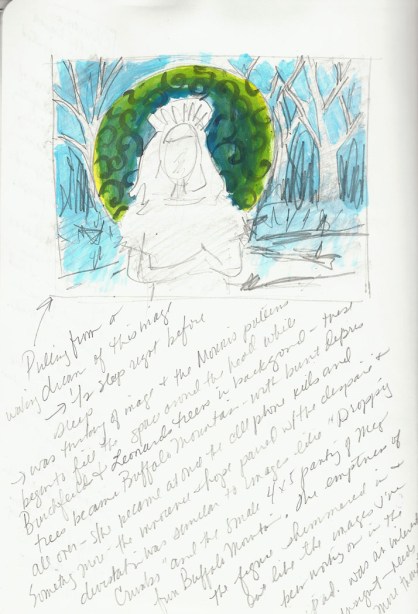 Pulling from a
waking dream of this image
→ 1/2 sleep right before
sleep
→ was thinking of image & the Morris patterns
began to fill the space around the head while
Burchfield & Leonardo trees in background – these
trees became Buffalo Mountain – with burnt debris
all over – she became at once the cell phone kids and
Something more – the innocence – hope paired w/ the despair &
devastation was similar to images like "Dropping
Crumbs" and the small 4x5 painting of Meg
from Buffalo Mountain. The emptiness of
the figure shimmered in &
out like the images I'm
been working on in the
was an
more